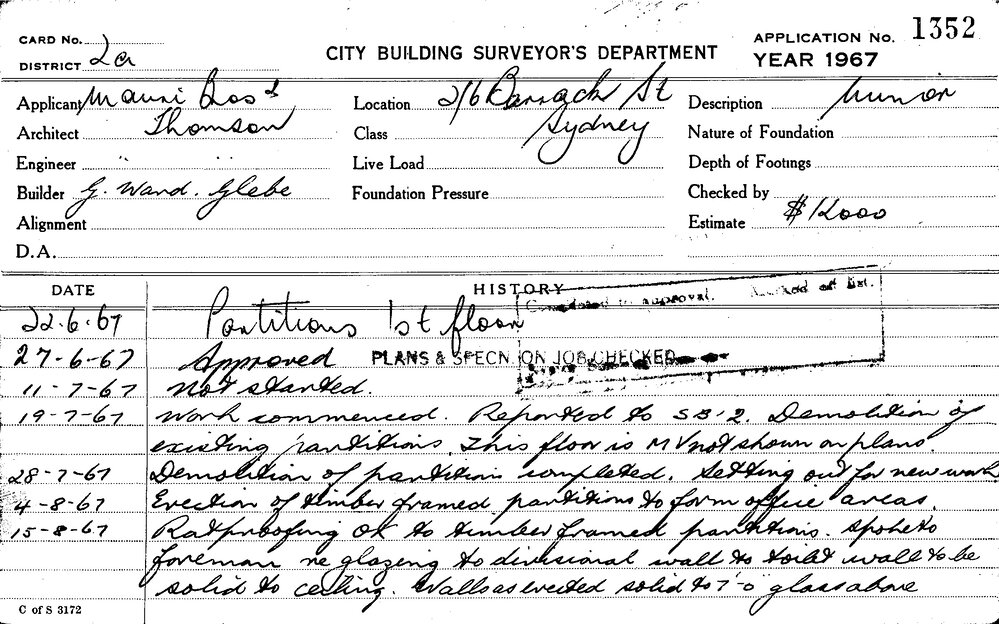 CARD No.
DISTRICT 2a
CITY BUILDING SURVEYOR'S DEPARTMENT
APPLICATION No. 1352
YEAR 1967
Applicant Mauri Bros &
Architect Thomson
Engineer " "
Builder G. Ward. Glebe
Alignment
D.A.
Location 2/6 Barrack St
Class Sydney
Live Load
Foundation Pressure
Description Minor
Nature of Foundation
Depth of Footings
Checked by
Estimate $12000
DATE HISTORY
22.6.67 Partitions 1st floor
approval.
27-6-67 Approved PLANS & SPECN. ON JOB CHECKED
11-7-67 Not started.
19-7-67 Work commenced. Reported to SB'2. Demolition of
existing partitions. This floor is MV not shown on plans
28-7-67 Demolition of partitions completed. Setting out for new work
4-8-67 Erection of timber framed partitions to form office areas
15-8-67 Ratproofing OK to timber framed partitions. Spoke to
foreman re glazing to divisional wall to toilet wall to be
solid to ceiling. Walls as erected solid to 7'-0 glass above
C of S 3172